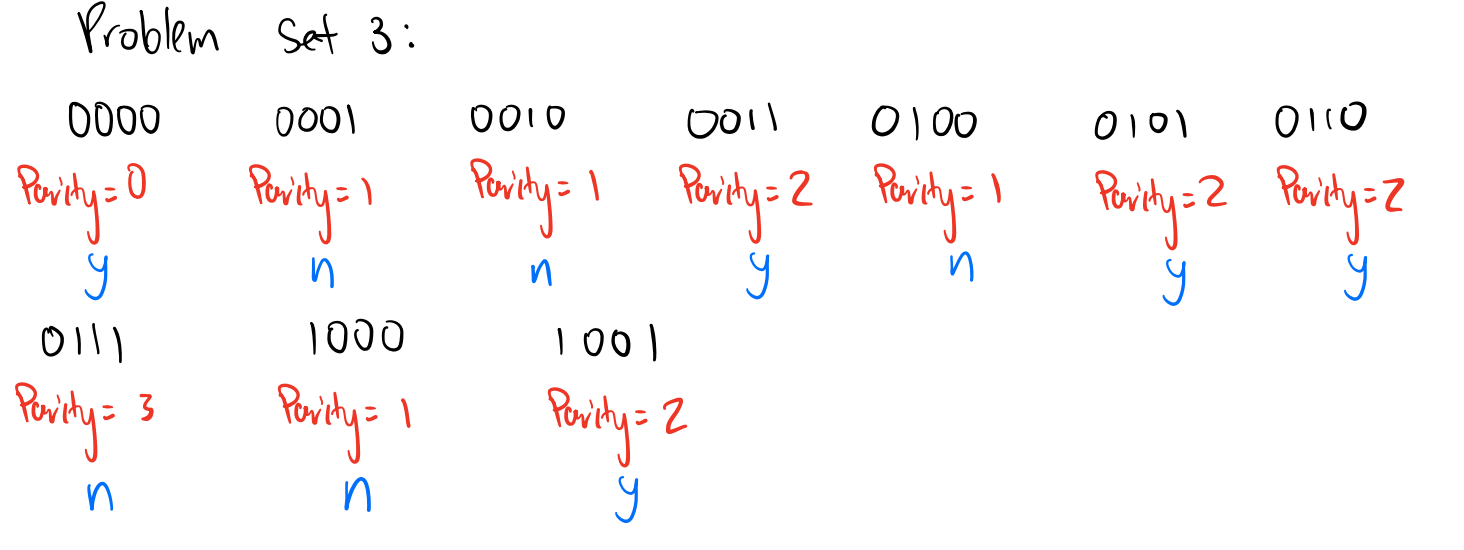 Problem Set 3:
0000 0001 0010 0011 0100 0101 0110
Parity=0 Parity=1 Parity=1 Parity=2 Parity=1 Parity=2 Parity=2
y n n y n y y
0111 1000 1001
Parity= 3 Parity= 1 Parity= 2
n n y